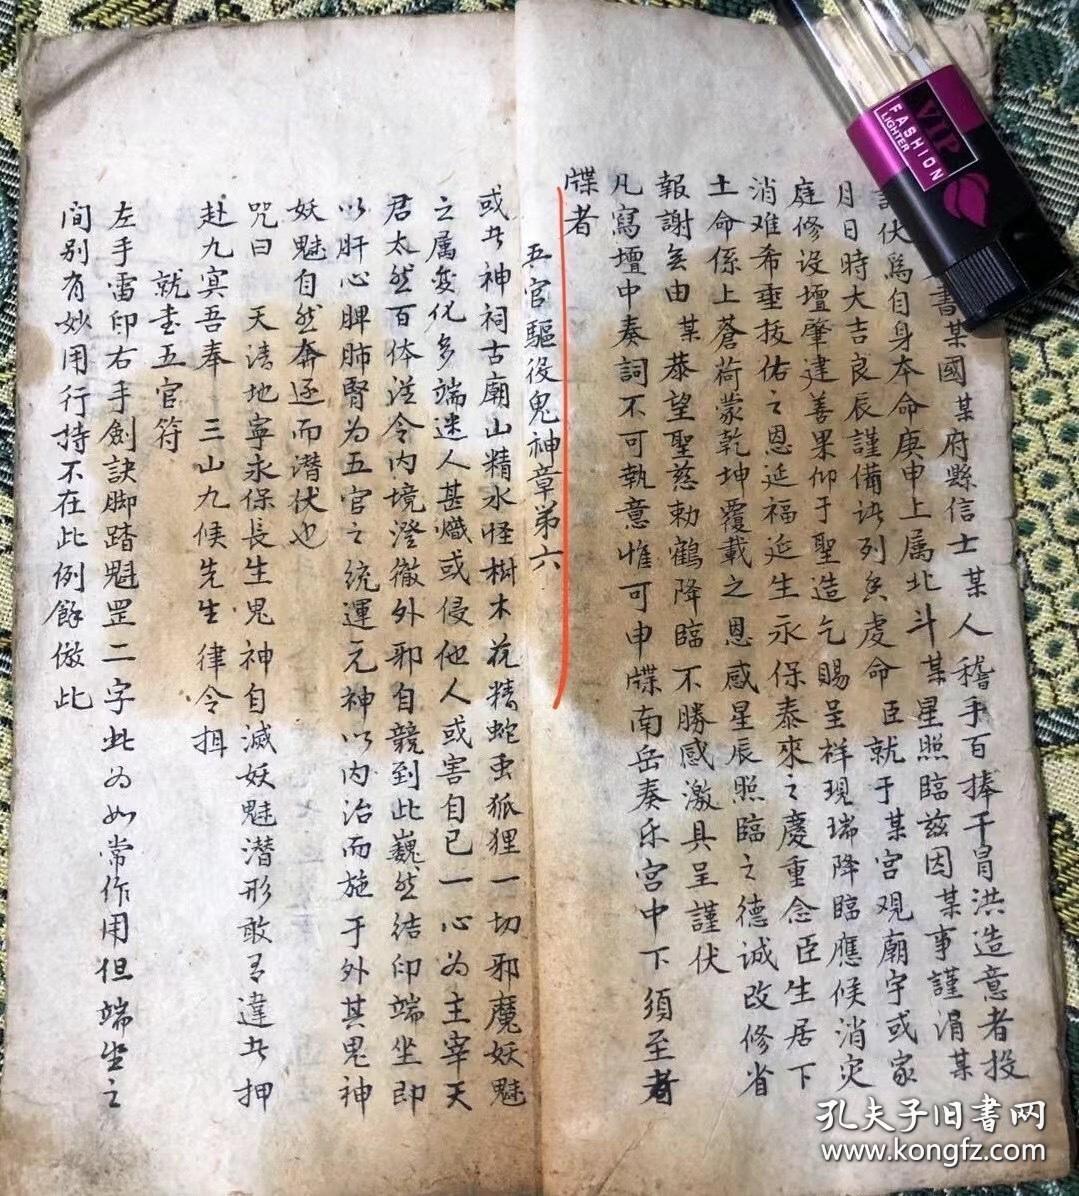 書某國某府縣信士某人稽手百捧干冒洪造意者投
伏為自身本命庚申上属北斗某星照臨茲因某事謹涓某
月日時大吉良辰謹備詞列奐虔命臣就于某宮观廟宇或家
庭修设壇肇建善果仰于聖造乞賜呈祥現瑞降臨應候消灾
消难希垂拔佑之恩延福延生永保泰來之慶重念臣生居下
土命係上蒼荷蒙乾坤覆載之恩感星辰照臨之德诚改修省
報謝無由某恭望聖慈勅鶴降臨不勝感激具呈謹伏
凡寫壇中奏詞不可執意惟可申牒南岳奏乐宫中下須至者
牒者
五官驅役鬼神章第六
或者神祠古廟山精水怪树木花精蛇虫狐狸一切邪魔妖魅
之属变化多端迷人甚熾或侵他人或害自己一心为主宰天
君太然百体從令内境澄徹外邪自競到此巍然结印端坐即
以肝心脾肺腎为五官之统運元神以内治而施于外其鬼神
妖魅自然奔逐而潜伏也
咒曰 天清地寧永保長生鬼神自滅妖魅潜形敢有違者押
赴九冥吾奉 三山九候先生律令摄
就書五官符
左手雷印右手劍訣脚踏魁罡二字此为如常作用但端坐之
間别有妙用行持不在此例餘倣此
VIP
FASHION
LIGHTER
孔夫子旧書网
www.kongfz.com